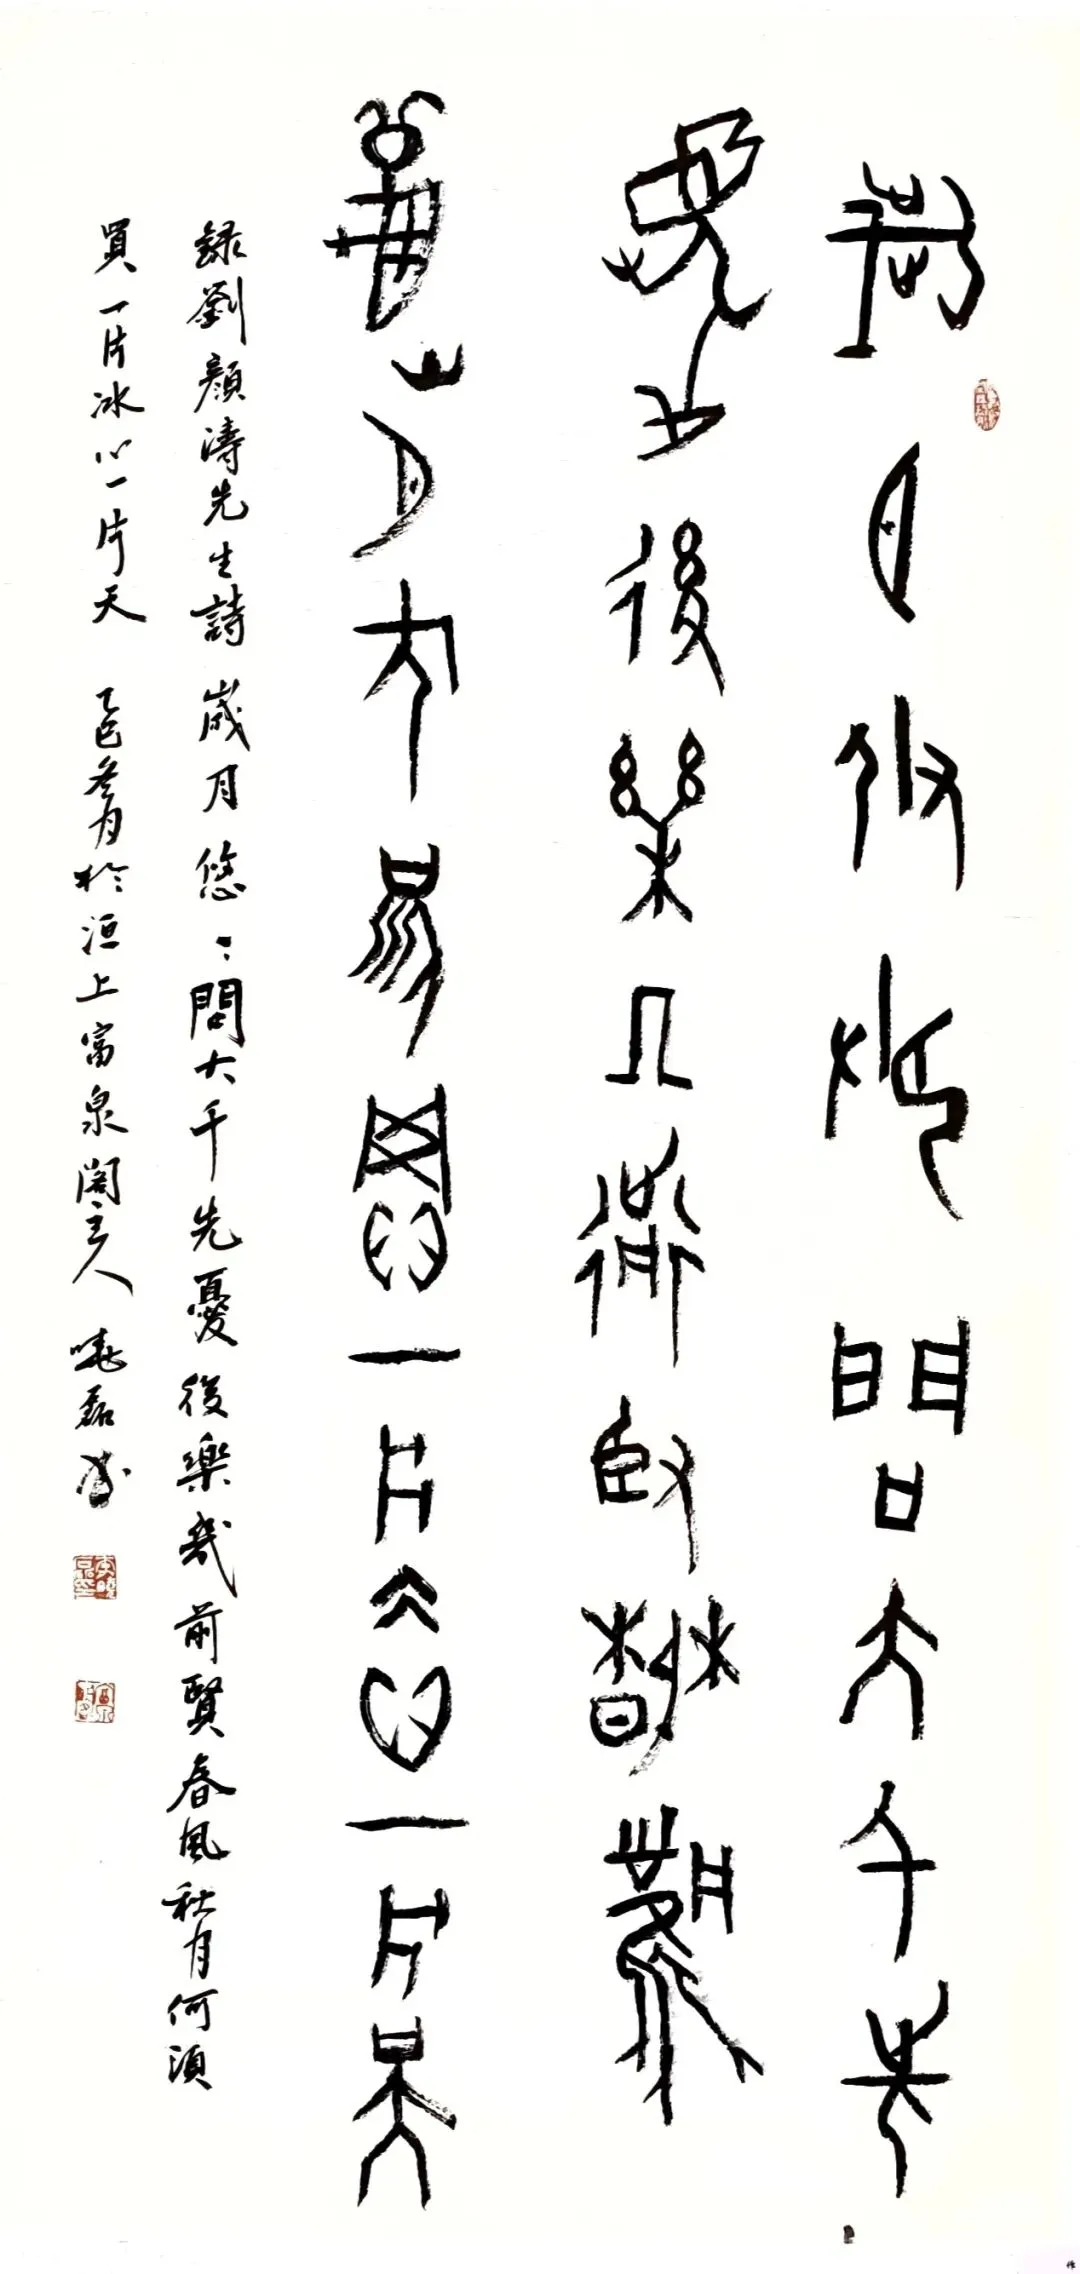 歲月悠悠問大千先
憂後樂幾前賢春風
秋月何須買一片冰心一片天
錄劉顏濤先生詩 歲月悠〻問大千先憂後樂幾前賢春風秋月何須
買一片冰心一片天 乙巳冬月於洹上富泉閣主人曉磊書